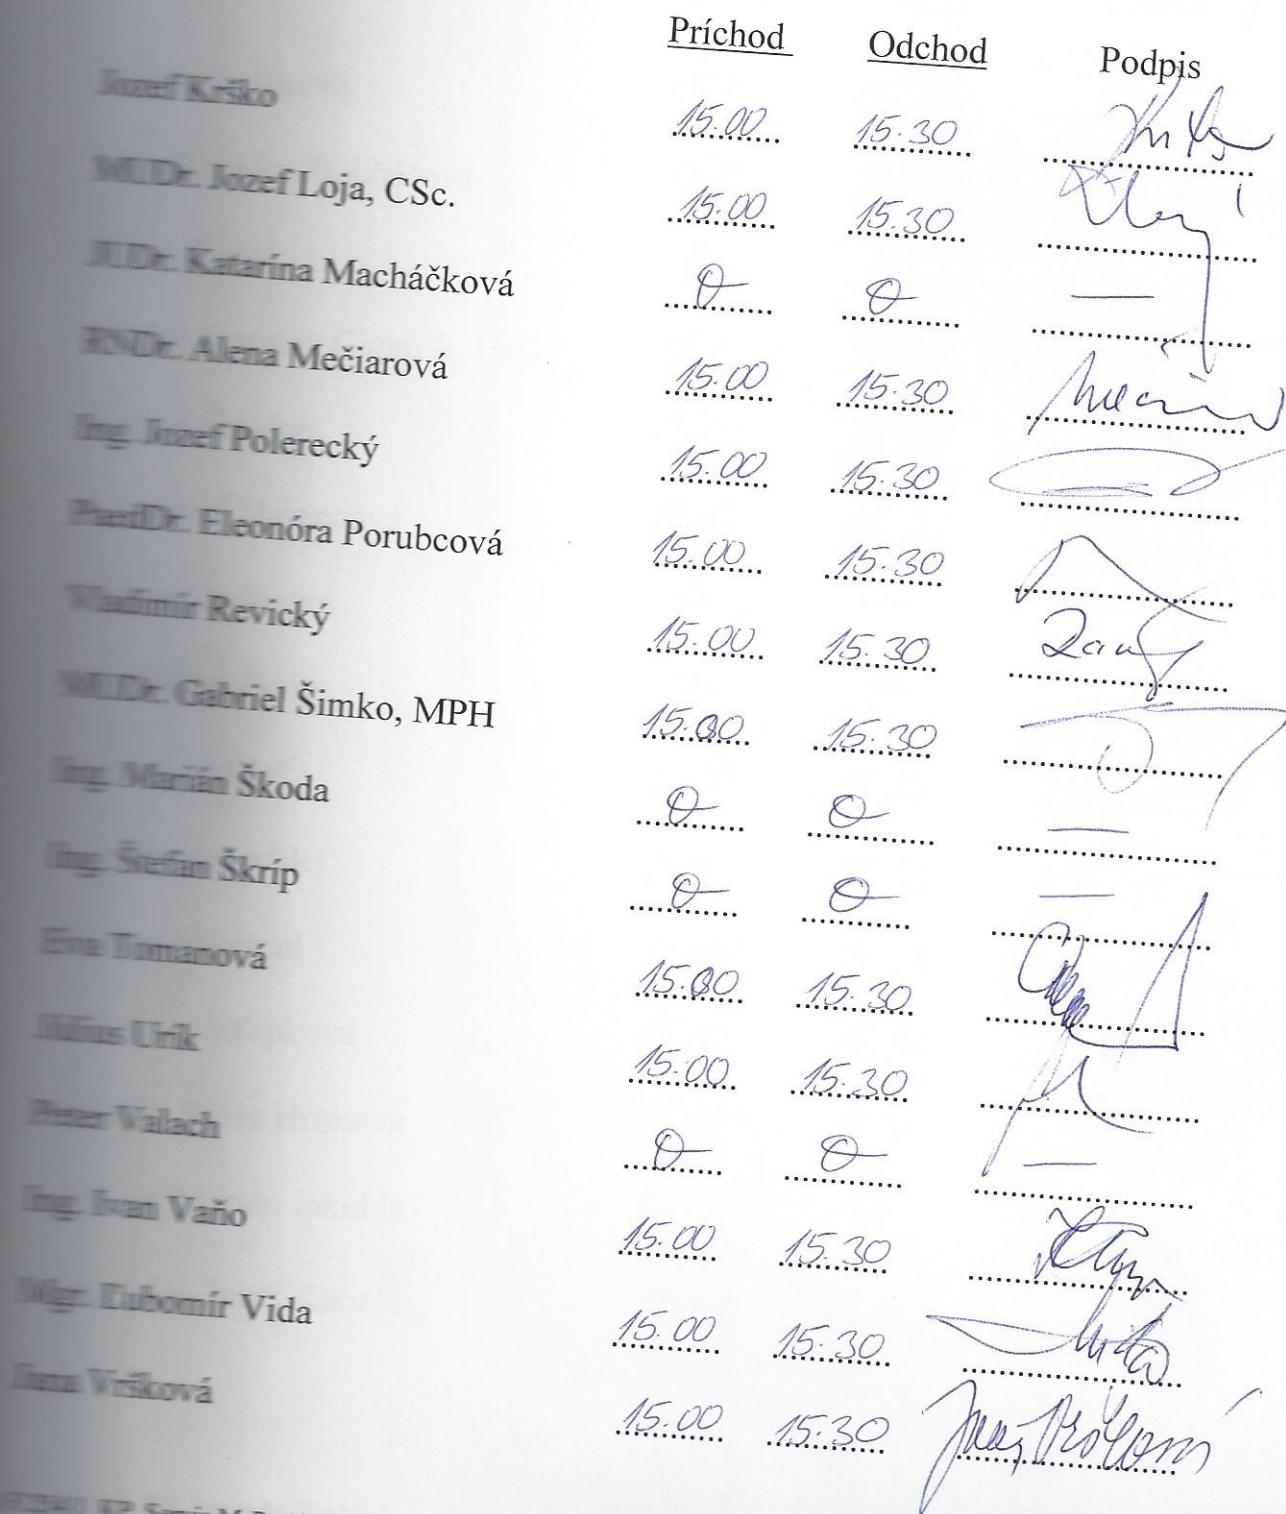 Príchod Odchod Podpis
Jozef Krško 15.00 15.30
MUDr. Jozef Loja, CSc. 15.00 15.30
JUDr. Katarína Macháčková 0 0 —
RNDr. Alena Mečiarová 15.00 15.30
Ing. Jozef Polerecký 15.00 15.30
PaedDr. Eleonóra Porubcová 15.00 15.30
Vladimír Revický 15.00 15.30
MUDr. Gabriel Šimko, MPH 15.00 15.30
Ing. Marián Škoda 0 0 —
Ing. Štefan Škríp 0 0 —
Eva Tomanová 15.00 15.30
Július Urík 15.00 15.30
Peter Valach 0 0 —
Ing. Ivan Vaňo 15.00 15.30
Mgr. Ľubomír Vida 15.00 15.30
Jana Vršková 15.00 15.30